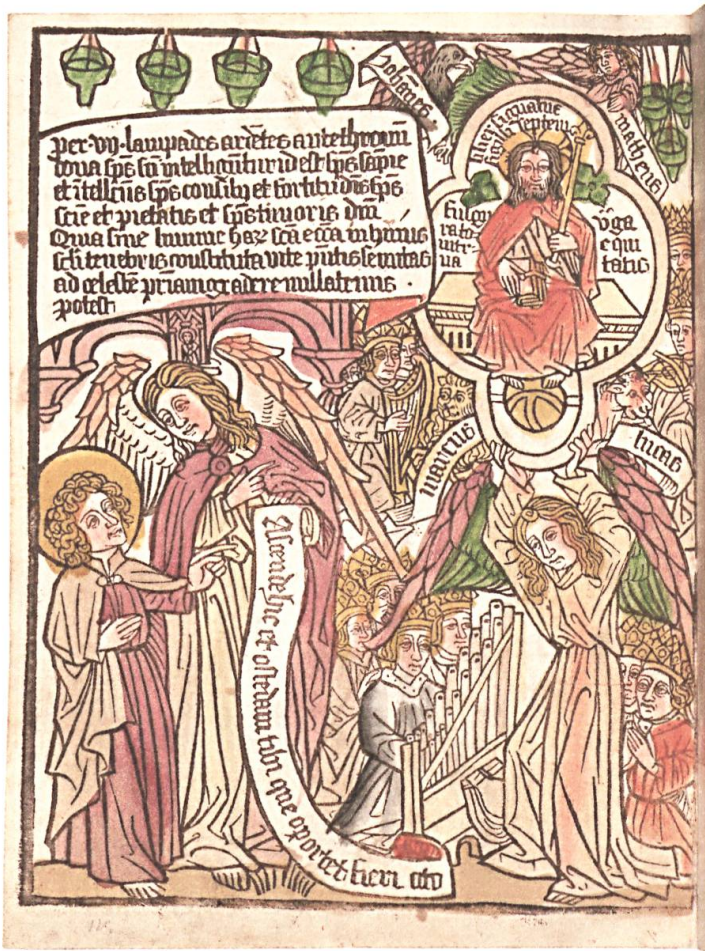 Johānes
matheus
per·vij·lampades ardētes ante thronū
dona sps sci intelligūtur id est sps sapie
et ītellcus sps consilij et fortitudīs sps
scie et pietatis et sps timoris dni
Quia sine lumine haz scā eccā in huius
scli tenebris constituta vite pñtis semitas
ad celestē priam gradere nullatenus
potest
liber signatus
sigillis septem
v̄ga
equi
tatis
marcus
lucas
Ascende huc et ostēdam tibi que oportet fieri cito